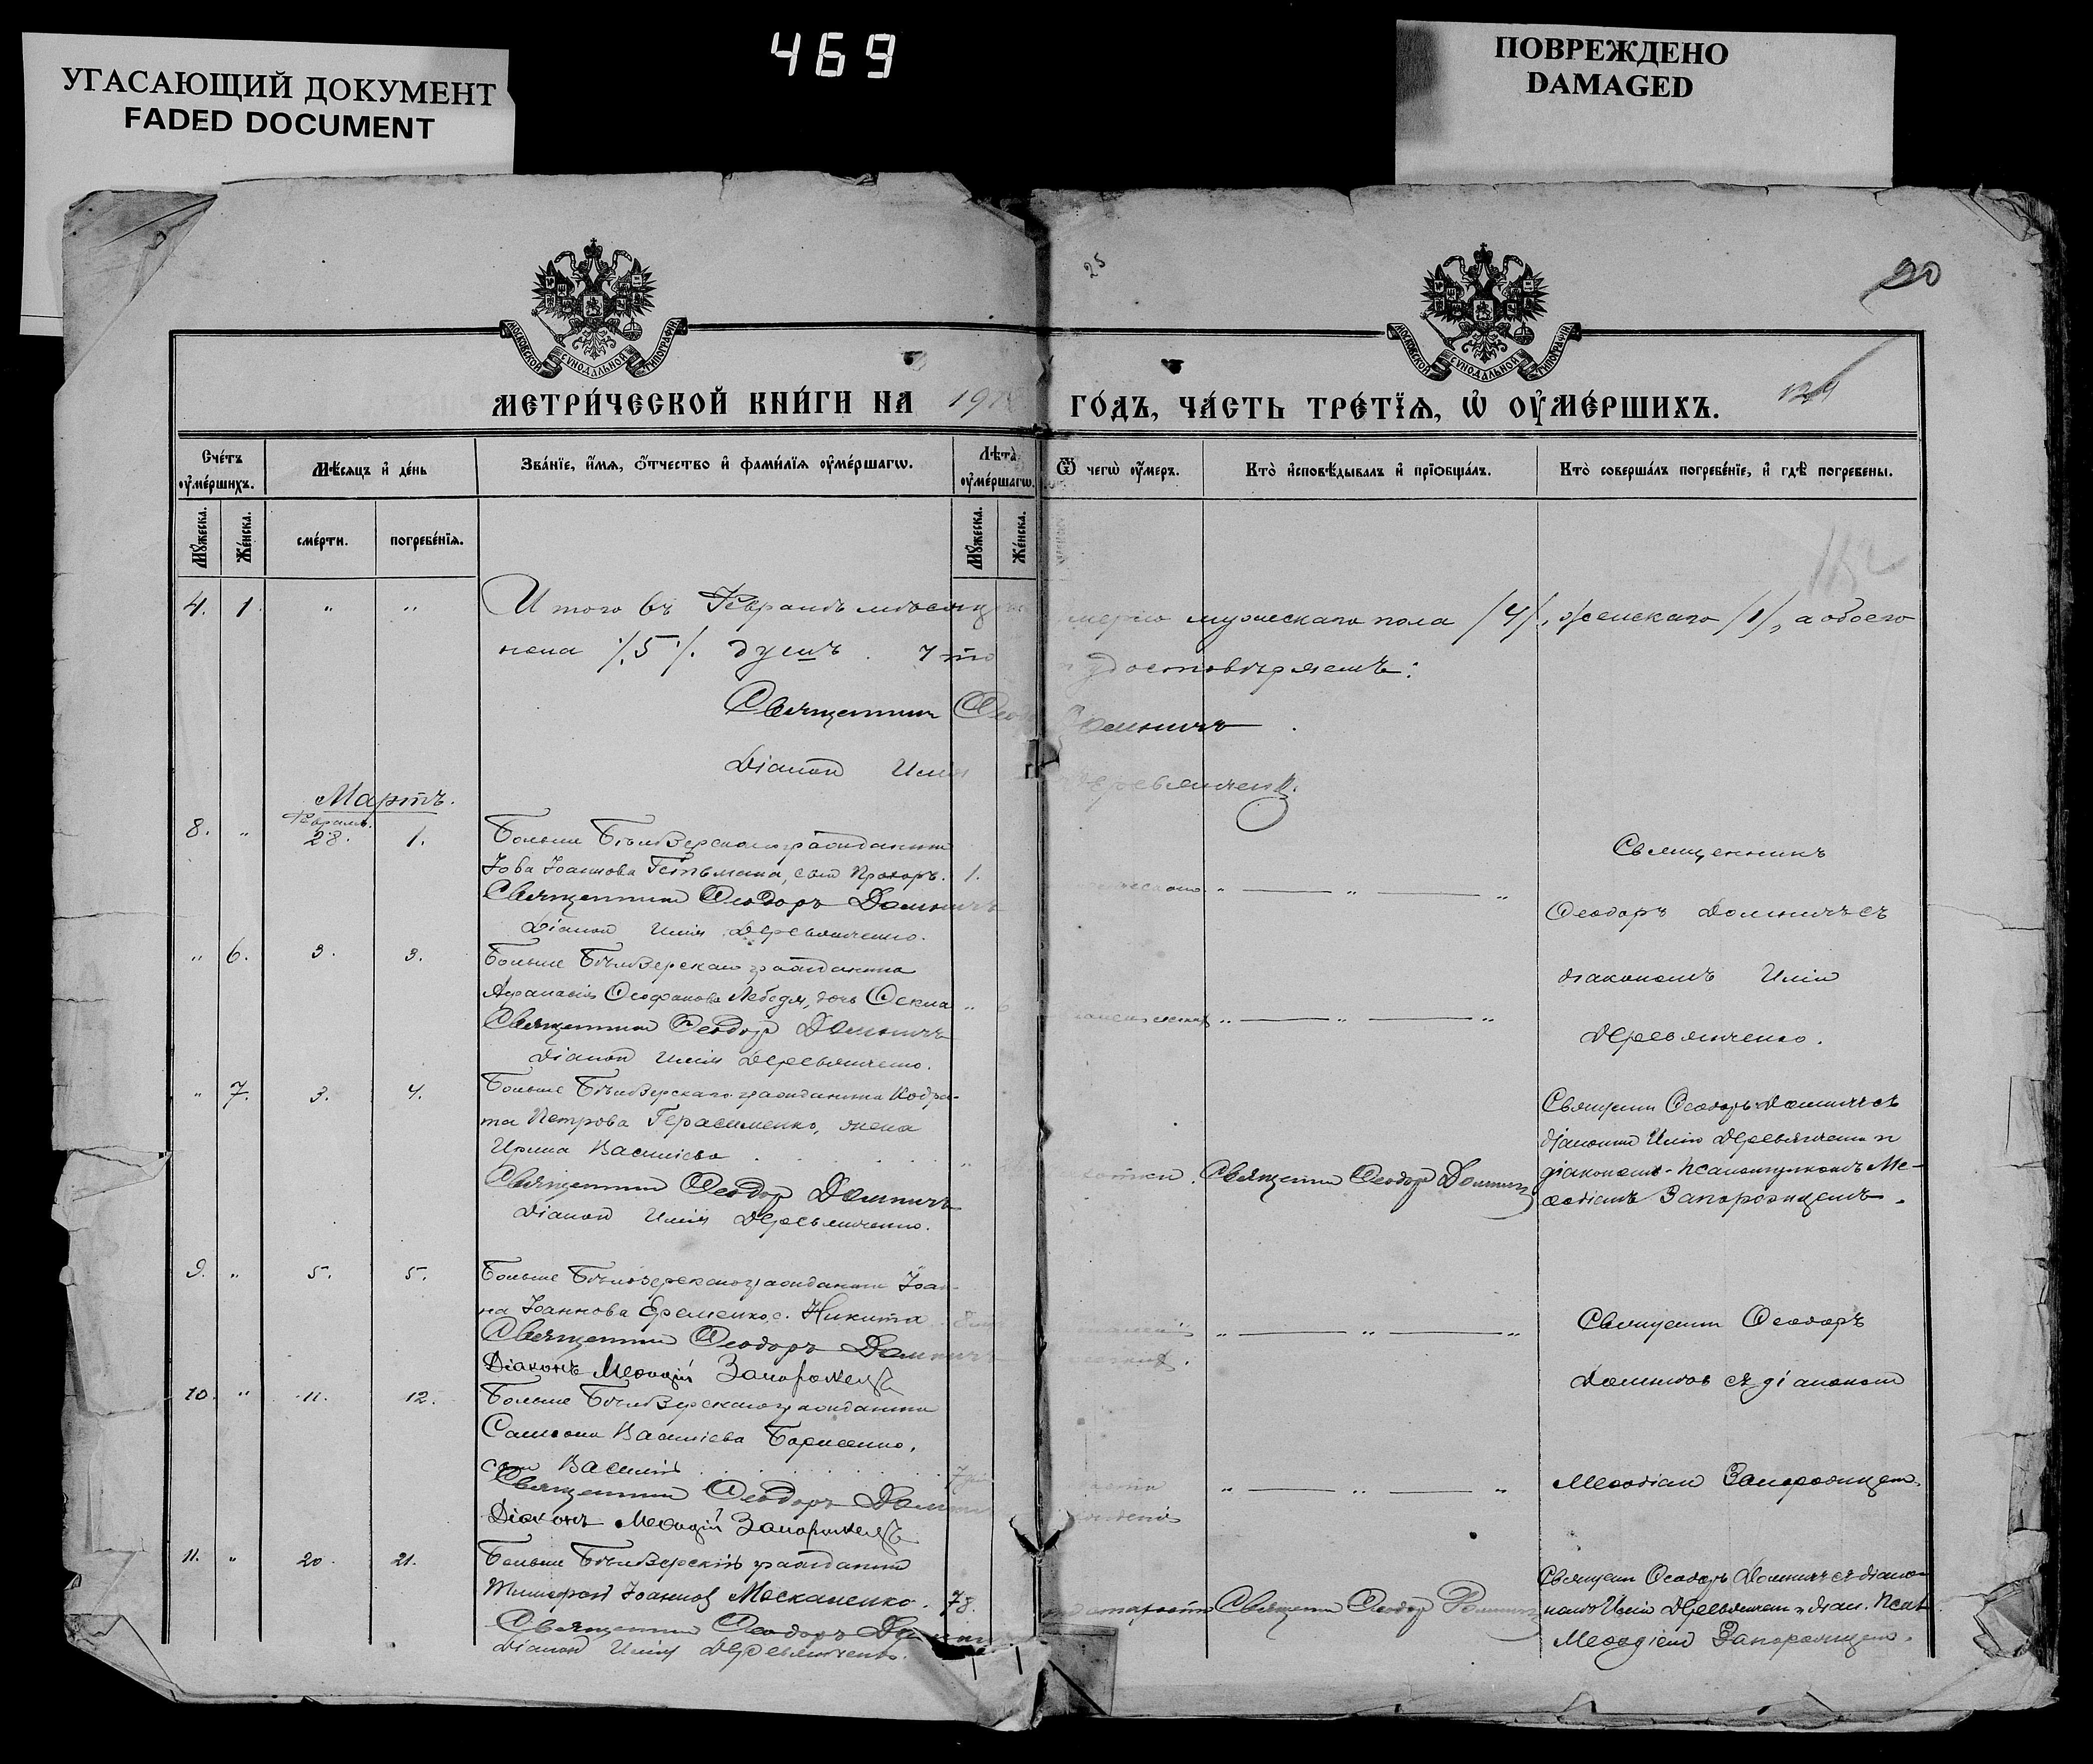 УГАСАЮЩИЙ ДОКУМЕНТ
FADED DOCUMENT
469
ПОВРЕЖДЕНО
DAMAGED
25
20
МОСКОВСКОЙ СУНОДАЛЬНОЙ ТИПОГРАФІИ
МОСКОВСКОЙ СУНОДАЛЬНОЙ ТИПОГРАФІИ
МЕТРИ́ЧЕСКОЙ КНИ́ГИ НА 191
ГО́ДЪ, ЧА́СТЬ ТРЕ́ТЇѦ, Ѡ҆ ОУ҆МЕ́РШИХЪ.
124
Сче́тъ оу҆ме́ршихъ.
Мѣ́сѧцъ и҆ де́нь
Зва́нїе, и҆́мѧ, ѻ҆́тчество и҆ фами́лїѧ оу҆ме́ршагѡ.
Лѣ́та оу҆ме́ршагѡ.
Ѿ чегѡ̀ оу҆́меръ.
Кто̀ и҆сповѣ́дывалъ и҆ прїѻбща́лъ.
Кто̀ соверша́лъ погребе́нїе, и҆ гдѣ̀ погребены.
Мꙋ́жеска.
Же́нска.
сме́рти.
погребе́нїѧ.
Мꙋ́жеска.
Же́нска.
4. 1 " " Итого въ Февралѣ мѣсяцѣ мерло мужескаго пола /4/, женскаго /1/, а обоего
пола /5/. душъ. что удостовѣряемъ:
Священникъ Ѳеодоръ Домничъ
Діаконъ Илія Деревянченко.
Мартъ.
Февраль.
8. " 28. 1. Больше Бѣлозерскаго гражданина
Іова Іоаннова Гетьмана, сынъ Прохоръ. 1. " — " — "
Священникъ Ѳеодоръ Домничъ
Діаконъ Илія Деревянченко.
Священникъ
Ѳеодоръ Домничъ съ
діакономъ Илію
Деревянченко.
" 6. 3. 3. Больше Бѣлозерскаго гражданина
Аѳанасія Ѳеофанова Лебедя, дочь Ѳекла " " — " — "
Священникъ Ѳеодоръ Домничъ
Діаконъ Илія Деревянченко.
" 7. 3. 4. Больше Бѣлозерскаго гражданина Кодра-
та Петрова Герасименко, жена
Ирина Василіева "
Священникъ Ѳеодоръ Домничъ
Діаконъ Илія Деревянченко.
Священникъ Ѳеодоръ Домничъ
Священникъ Ѳеодоръ Домничъ съ
діакономъ Илію Деревянченко и
діакономъ-псаломщикомъ Ме-
ѳодіемъ Запорожцемъ.
9. " 5. 5. Больше Бѣлозерскаго гражданина Іоан-
на Іоаннова Еременко, с. Никита " — " — "
Священникъ Ѳеодоръ Домничъ
Діаконъ Меѳодій Запорожецъ
Священникъ Ѳеодоръ
Домничъ съ діакономъ
Меѳодіемъ Запорожцемъ.
10. " 11. 12. Больше Бѣлозерскаго гражданина
Самсона Василіева Борисенко,
сынъ Василій " — " — "
Священникъ Ѳеодоръ Домничъ
Діаконъ Меѳодій Запорожецъ
11. " 20. 21. Больше Бѣлозерскій гражданинъ
Іоанновъ Москаленко. 78. старости Священникъ Ѳеодоръ Домничъ
Священникъ Ѳеодоръ Домничъ
Діаконъ Илія Деревянченко.
Священникъ Ѳеодоръ Домничъ съ діако-
номъ Илію Деревянченко и діак. псал.
Меѳодіемъ Запорожцемъ.